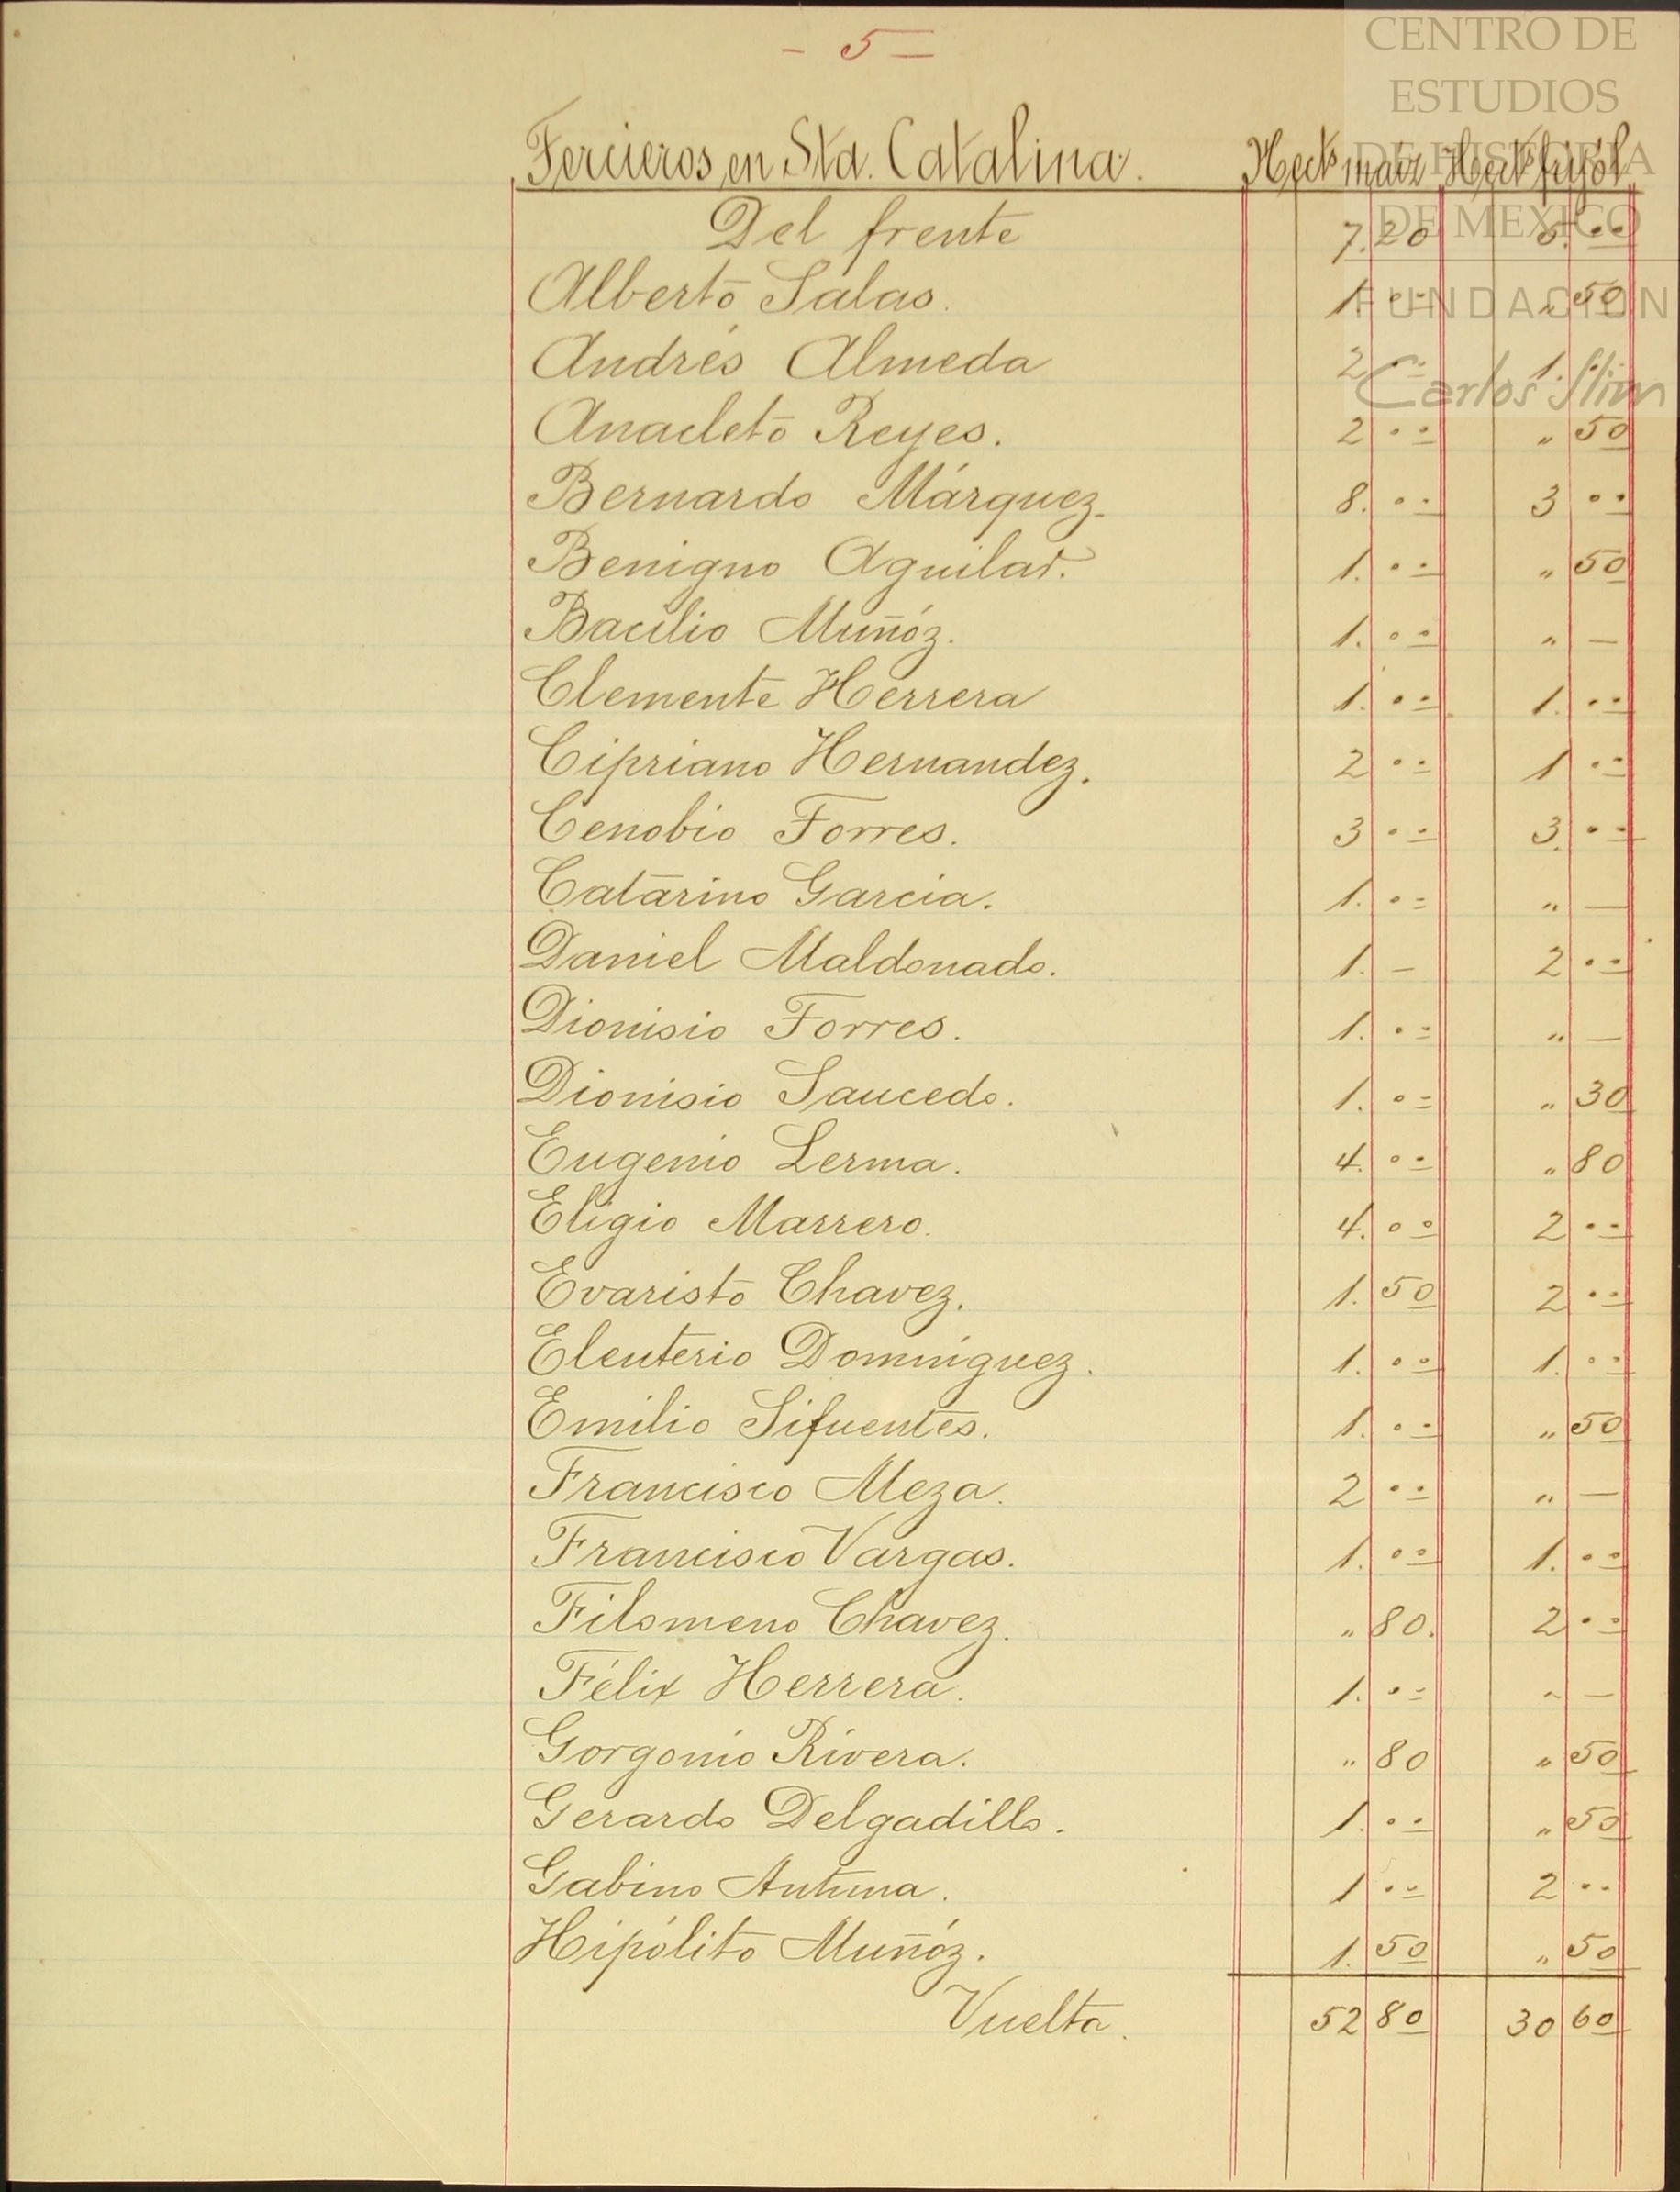 CENTRO DE
ESTUDIOS
DE HISTORIA
DE MEXICO
FUNDACION
Carlos Slim
- 5 =
Tercieros en Sta. Catalina. Hect maiz Hect frijól
Del frente 7.20 5. 00
Alberto Salas. 1. 00 " 50
Andrés Almeda 2 00 1. 00
Anacleto Reyes. 2 00 " 50
Bernardo Márquez. 8. 00 3 00
Benigno Aguilar. 1. 00 " 50
Bacilio Muñóz. 1. 00 " —
Clemente Herrera 1. 00 1. 00
Cipriano Hernandez. 2 00 1 00
Cenobio Torres. 3 00 3. 00
Catarino Garcia. 1. 00 " —
Daniel Maldonado. 1. — 2 00
Dionisio Torres. 1. 00 " —
Dionisio Saucedo. 1. 00 " 30
Eugenio Lerma. 4. 00 " 80
Eligio Marrero. 4. 00 2 00
Evaristo Chavez. 1. 50 2 00
Eleuterio Dominguez. 1. 00 1. 00
Emilio Sifuentes. 1. 00 " 50
Francisco Meza. 2 00 " —
Francisco Vargas. 1. 00 1. 00
Filomeno Chavez. " 80. 2 00
Félix Herrera. 1. 00 " —
Gorgonio Rivera. " 80 " 50
Gerardo Delgadillo. 1. 00 " 50
Gabino Antuna. 1 00 2 00
Hipólito Muñóz. 1. 50 " 50
Vuelta. 52 80 30 60